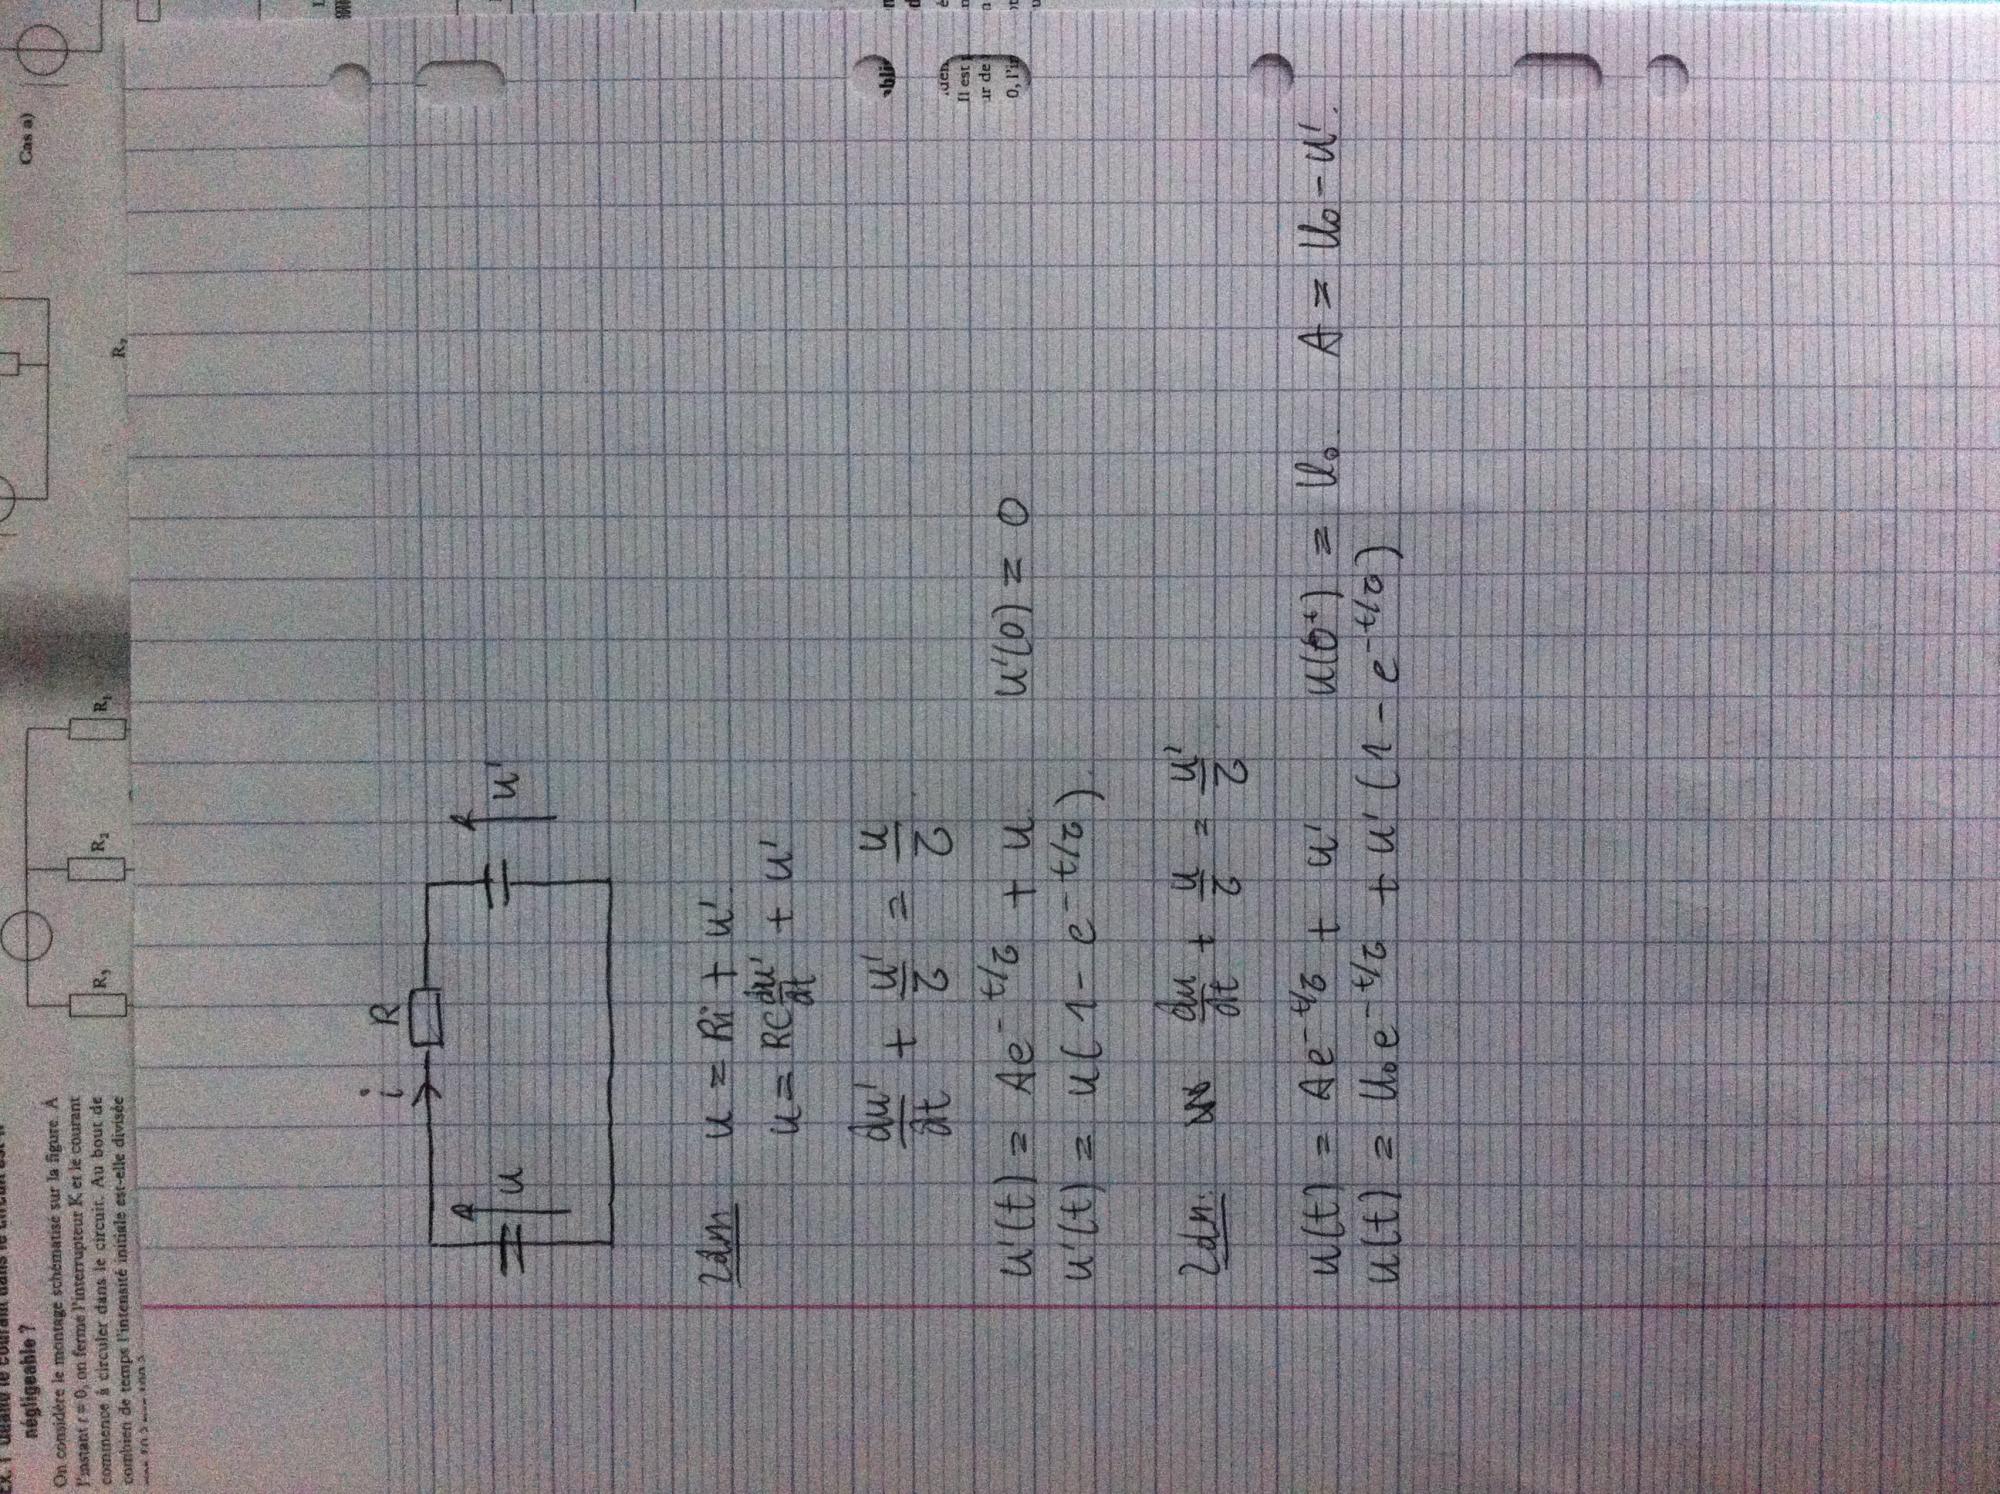 Cas a)
R₂
R₃
R₂
R₁
négligeable ?
On considère le montage schématisé sur la figure. À
l'instant t = 0, on ferme l'interrupteur K et le courant
commence à circuler dans le circuit. Au bout de
combien de temps l'intensité initiale est-elle divisée
Il est
ur de
0, l'in
i R
u u'
ldm u = Ri + u'
u = RC du'/dt + u'
du'/dt + u'/τ = u/τ
u'(t) = Ae^(-t/τ) + u u'(0) = 0
u'(t) = u(1 - e^(-t/τ))
ldm du/dt + u/τ = u'/τ
u(t) = Ae^(-t/τ) + u' u(0⁺) = U₀ A = U₀ - u'.
u(t) = U₀e^(-t/τ) + u'(1 - e^(-t/τ))